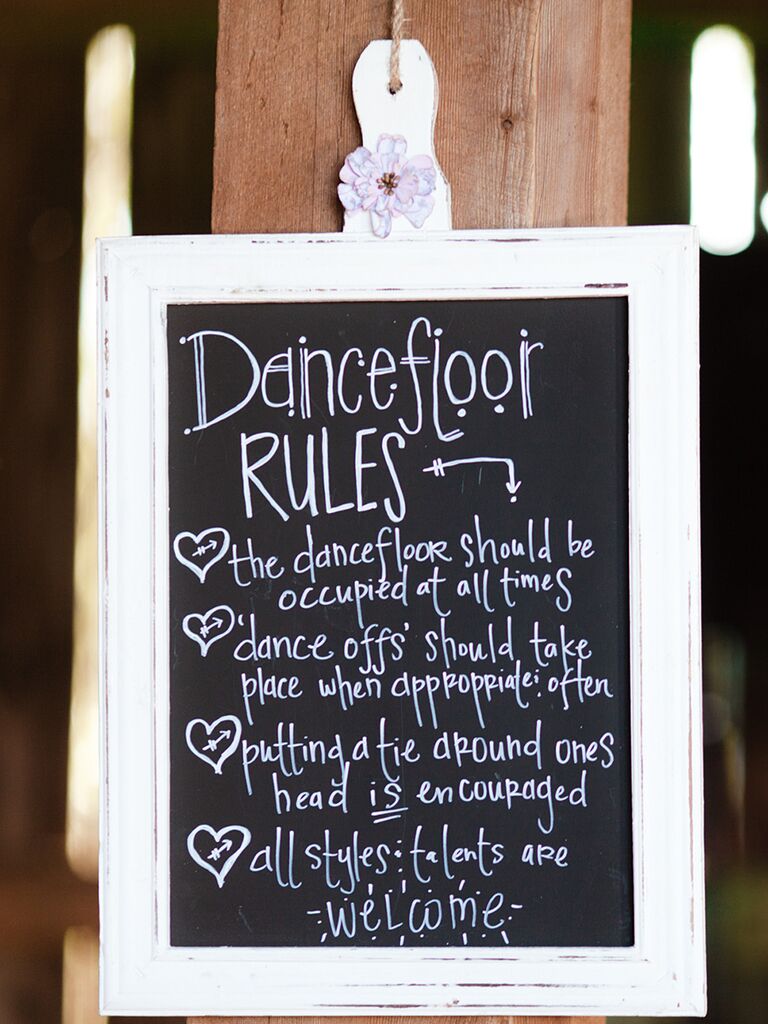 Dancefloor
RULES
the dancefloor should be
occupied at all times
'dance offs' should take
place when appropriate: often
putting a tie around ones
head is encouraged
all styles: talents are
-welcome-